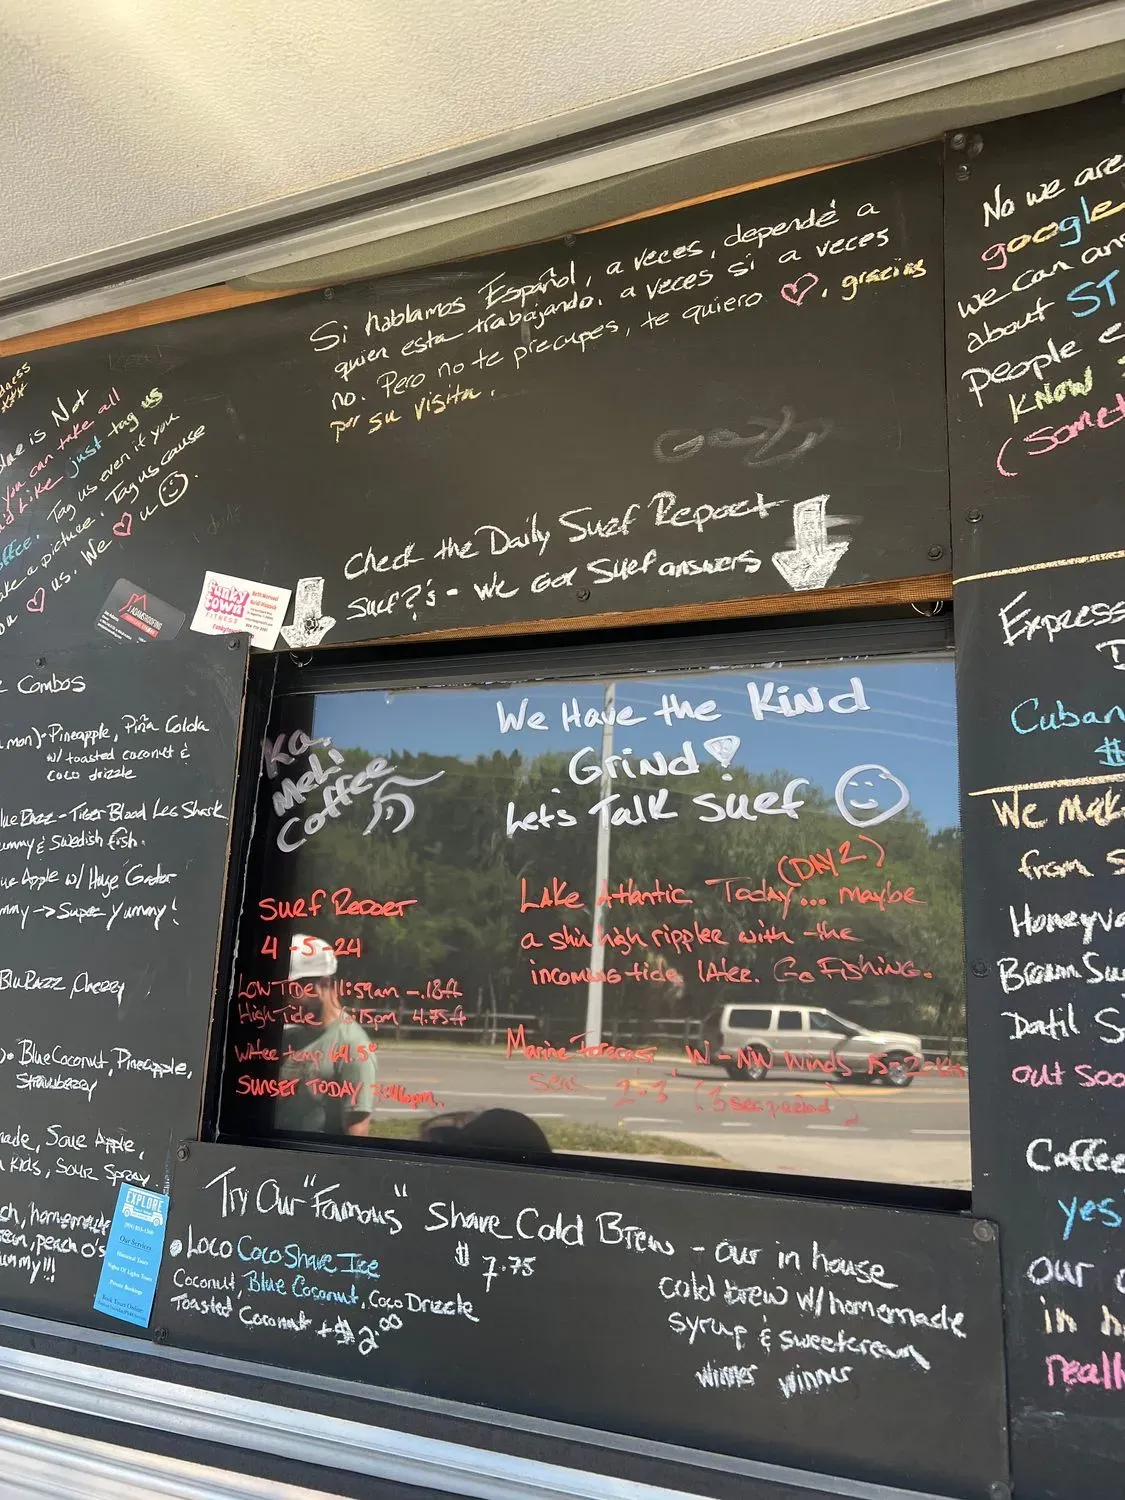 Si hablamos Español, a veces, depende a
quien esta trabajando. a veces si a veces
no. Pero no te precupes, te quiero ♡. gracias
por su visita.
No we are
google
we can an
about ST
people e
Know
(Somet
ue is Not
you can take all
d Like just tag us
ffee. Tag us even if you
ake a picture. Tag us cause
us. We ♡ u ☺.
Check the Daily Surf Report
Surf ?'s - We Got Surf answers
funky
town
FITNESS
Combos
mon)-Pineapple, Piña Colda
w/ toasted coconut &
coco drizzle
lue Razz - Tiger Blood Les Shark
ummy & Swedish fish.
ue Apple w/ Huge Gator
mmy → Super Yummy!
Blu Razz, Cherry
Blue Coconut, Pineapple,
Strawberry
nade, Sour Apple,
Kids, Sour Spray.
sh, homemade
ean, peach o's
ummy!!!
EXPLORE
Our Services
Ka.
Mehi
Coffee
We Have the Kind
Grind!
Let's Talk Surf ☺
Surf Report
4-5-24
Low Tide 11:59am -.18ft
High Tide 6:15pm 4.75ft
Water temp 69.5°
Sunset TODAY 7:46pm.
(DAY 2)
Lake Atlantic Today... maybe
a shin high rippler with the
incoming tide, later. Go Fishing.
Marine Forecast W-NW Winds 15-20kn
Seas 2-3' (3 sec period)
Express
Cuban
$
We make
from S
Honeyva
Brown Su
Datil S
out soo
Coffee
yes
our
in h
reall
Try Our "Famous" Shave Cold Brew - our in house
$7.75
cold brew w/homemade
syrup & sweetcream
winner winner
• Loco Coco Shave Ice
Coconut, Blue Coconut, Coco Drizzle
Toasted Coconut + $2.00